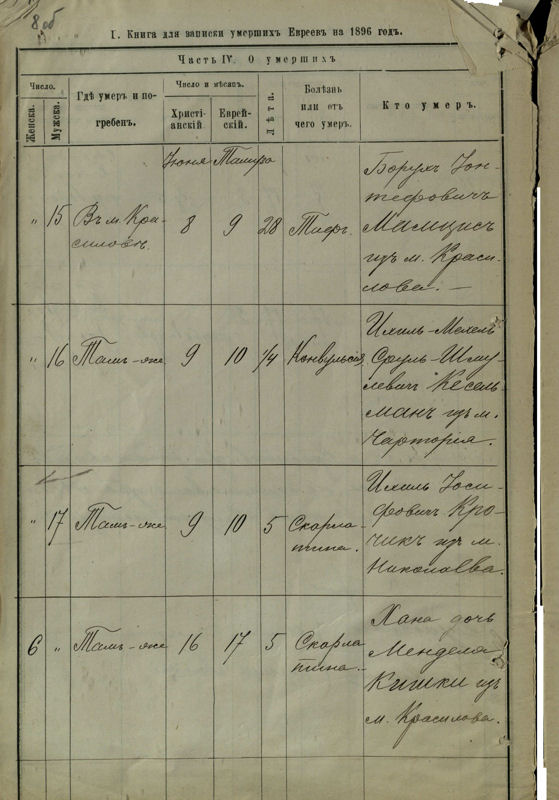 8 об
I. Книга для записки умершихъ Евреевъ на 1896 годъ.
Часть IV. О умершихъ
Число.
Женска.
Мужска.
Гдѣ умеръ и по-
гребенъ.
Число и мѣсяцъ.
Христі-
анскій
Еврей-
скій.
Лѣта.
Болѣзнь
или отъ
чего умеръ.
Кто умеръ.
Іюня Тамуза
" 15 Въ м. Кра-
силовѣ. 8 9 28 Тифъ.
Борухъ Іон-
тефовичъ
Мамцисъ
изъ м. Краси-
лова. —
" 16 Тамъ-же 9 10 1/4 Конвульсія
Ихиль-Мехель
Сруль-Шму
левичъ Кесель-
манъ изъ м.
Чарторія.
" 17 Тамъ-же 9 10 5 Скарла-
тина.
Ихиль Іоси-
фовичъ Кро-
чикъ изъ м.
Николаева.
6 " Тамъ-же 16 17 5 Скарла
тина.
Хана дочь
Менделя
Кишки изъ
м. Красилова.